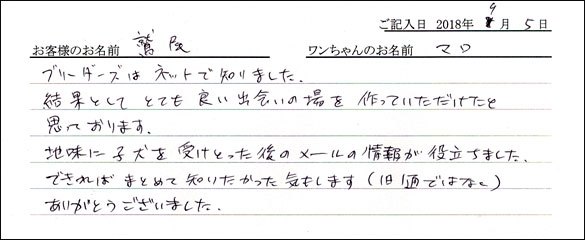 ご記入日 2018年 9月 5日
お客様のお名前 鷲尾 ワンちゃんのお名前 マロ
ブリーダーズはネットで知りました。
結果としてとても良い出会いの場を作っていただけたと
思っております。
地味に子犬を受けとった後のメールの情報が役立ちました。
できればまとめて知りたかった気もします(旧価ではなく)
ありがとうございました。